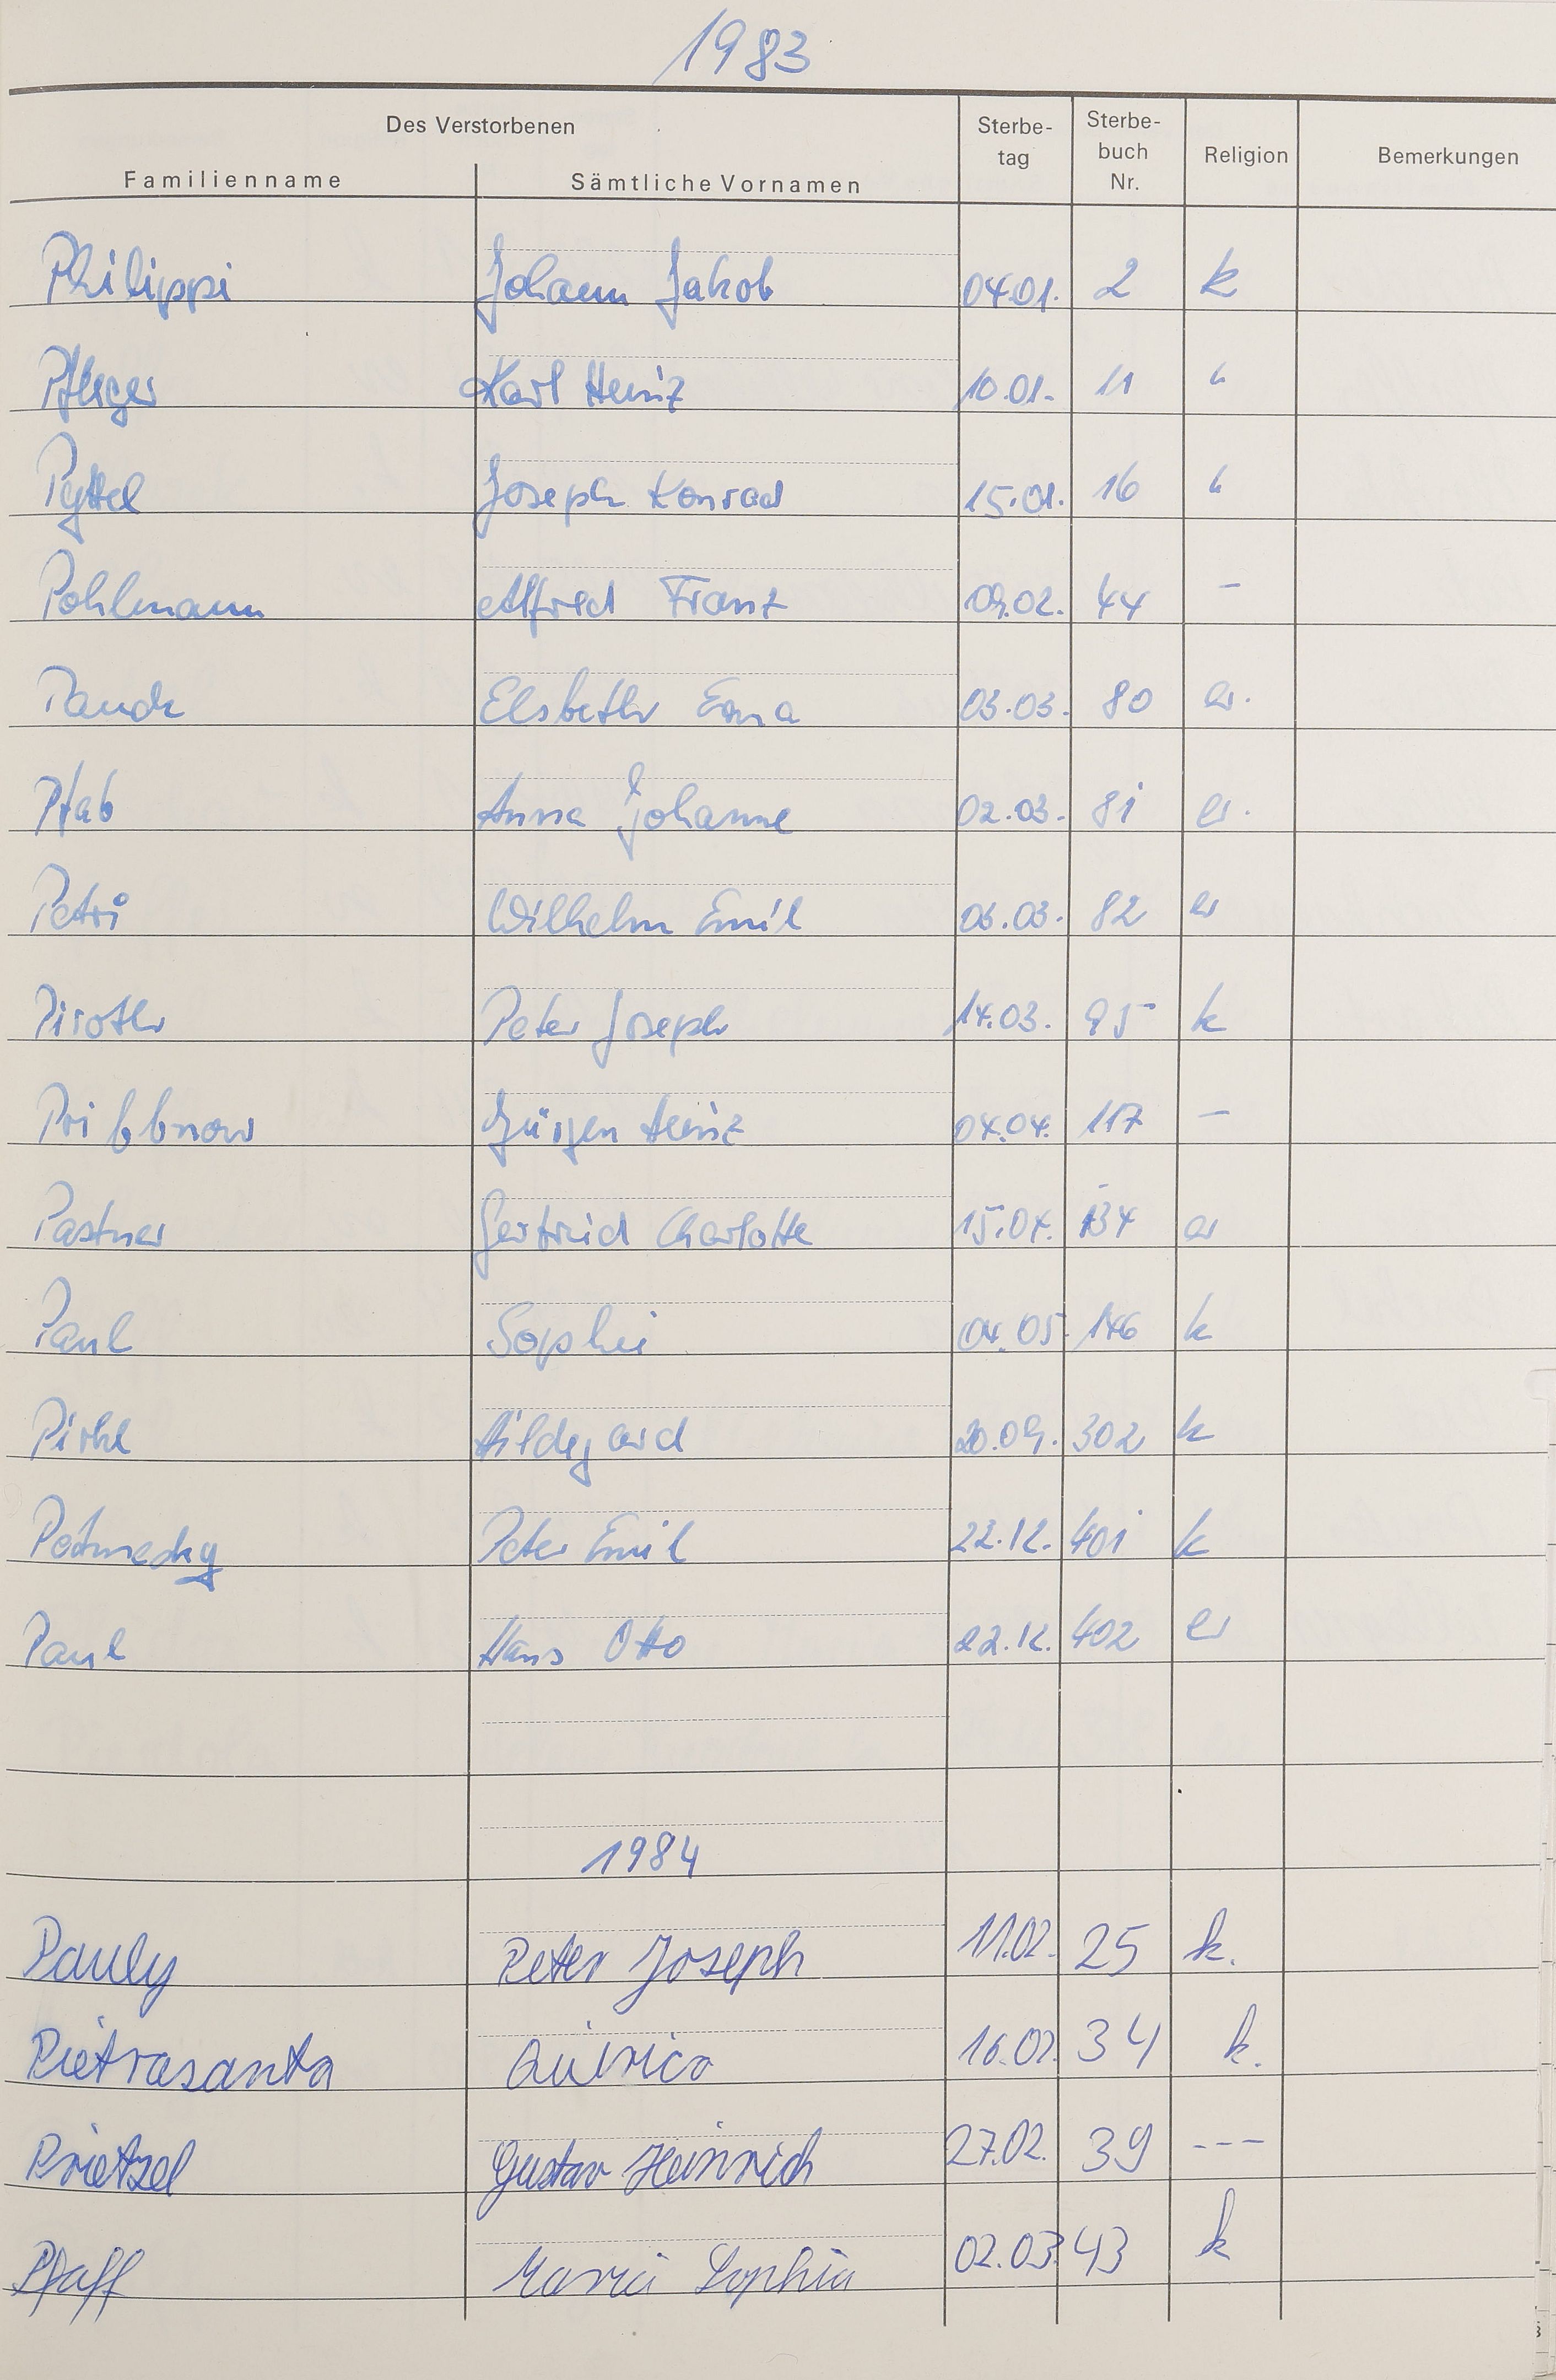 1983
Des Verstorbenen
Familienname Sämtliche Vornamen Sterbe-tag Sterbe-buch Nr. Religion Bemerkungen
Philippi Johann Jakob 04.01. 2 k
Pfleger Karl Heinz 10.01. 11 "
Pyttel Joseph Konrad 15.01. 16 "
Pohlmann Alfred Franz 09.02. 44 –
Pauck Elsbeth Erna 03.03. 80 ev.
Pfab Anna Johanne 02.03. 81 ev.
Petri Wilhelm Emil 03.03. 82 ev
Piroth Peter Joseph 14.03. 95 k
Pribbnow Jürgen Heinz 04.04. 117 –
Pastner Gertrud Charlotte 15.04. 134 ev
Paul Sophie 04.05. 146 k
Pirkl Hildegard 20.09. 302 k
Petmecky Peter Emil 22.12. 401 k
Paul Hans Otto 22.12. 402 ev
1984
Pauly Peter Joseph 11.02. 25 k.
Pietrasanta Quirico 16.02. 34 k.
Prietzel Gustav Heinrich 27.02. 39 ---
Pfaff Maria Sophia 02.03. 43 k